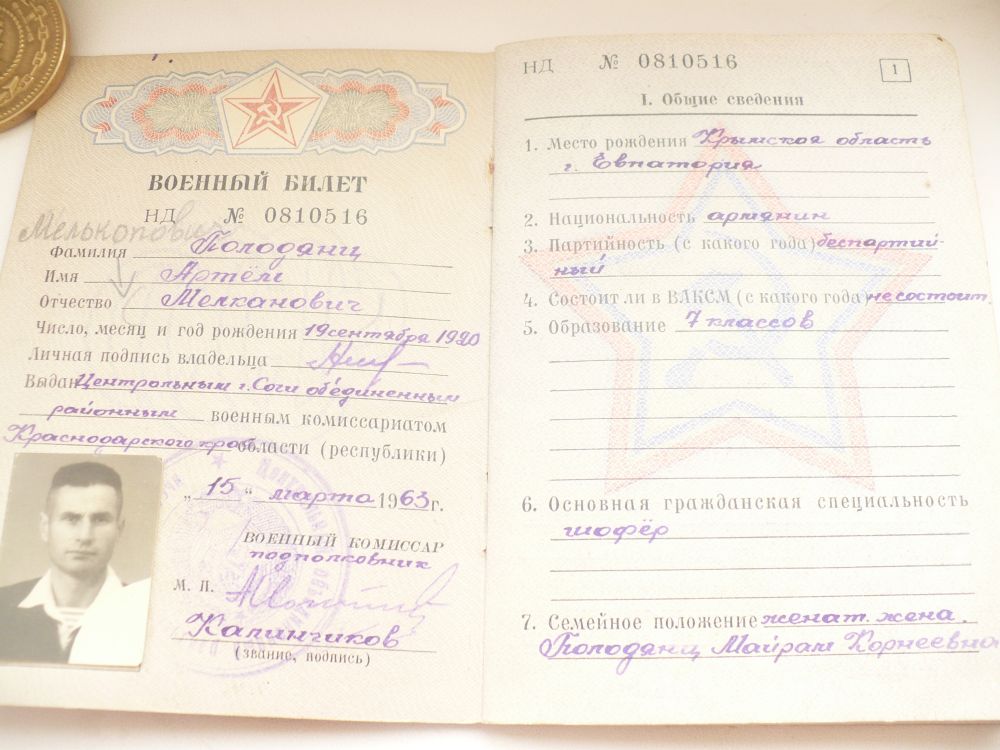 ВОЕННЫЙ БИЛЕТ
НД № 0810516
Мелькопович
Фамилия Полодянц
Имя Артём
Отчество Мелканович
Число, месяц и год рождения 19 сентября 1920
Личная подпись владельца
Выдан Центральным г. Сочи объединенным
районным военным комиссариатом
Краснодарского края области (республики)
„ 15 “ марта 1963 г.
ВОЕННЫЙ КОМИССАР
подполковник
М. П.
Калинчиков
(звание, подпись)
НД № 0810516
1
I. Общие сведения
1. Место рождения Крымская область
г. Евпатория
2. Национальность армянин
3. Партийность (с какого года) беспартий-
ный
4. Состоит ли в ВЛКСМ (с какого года) не состоит.
5. Образование 7 классов
6. Основная гражданская специальность
шофёр
7. Семейное положение женат. жена.
Полодянц Майрам Корнеевна